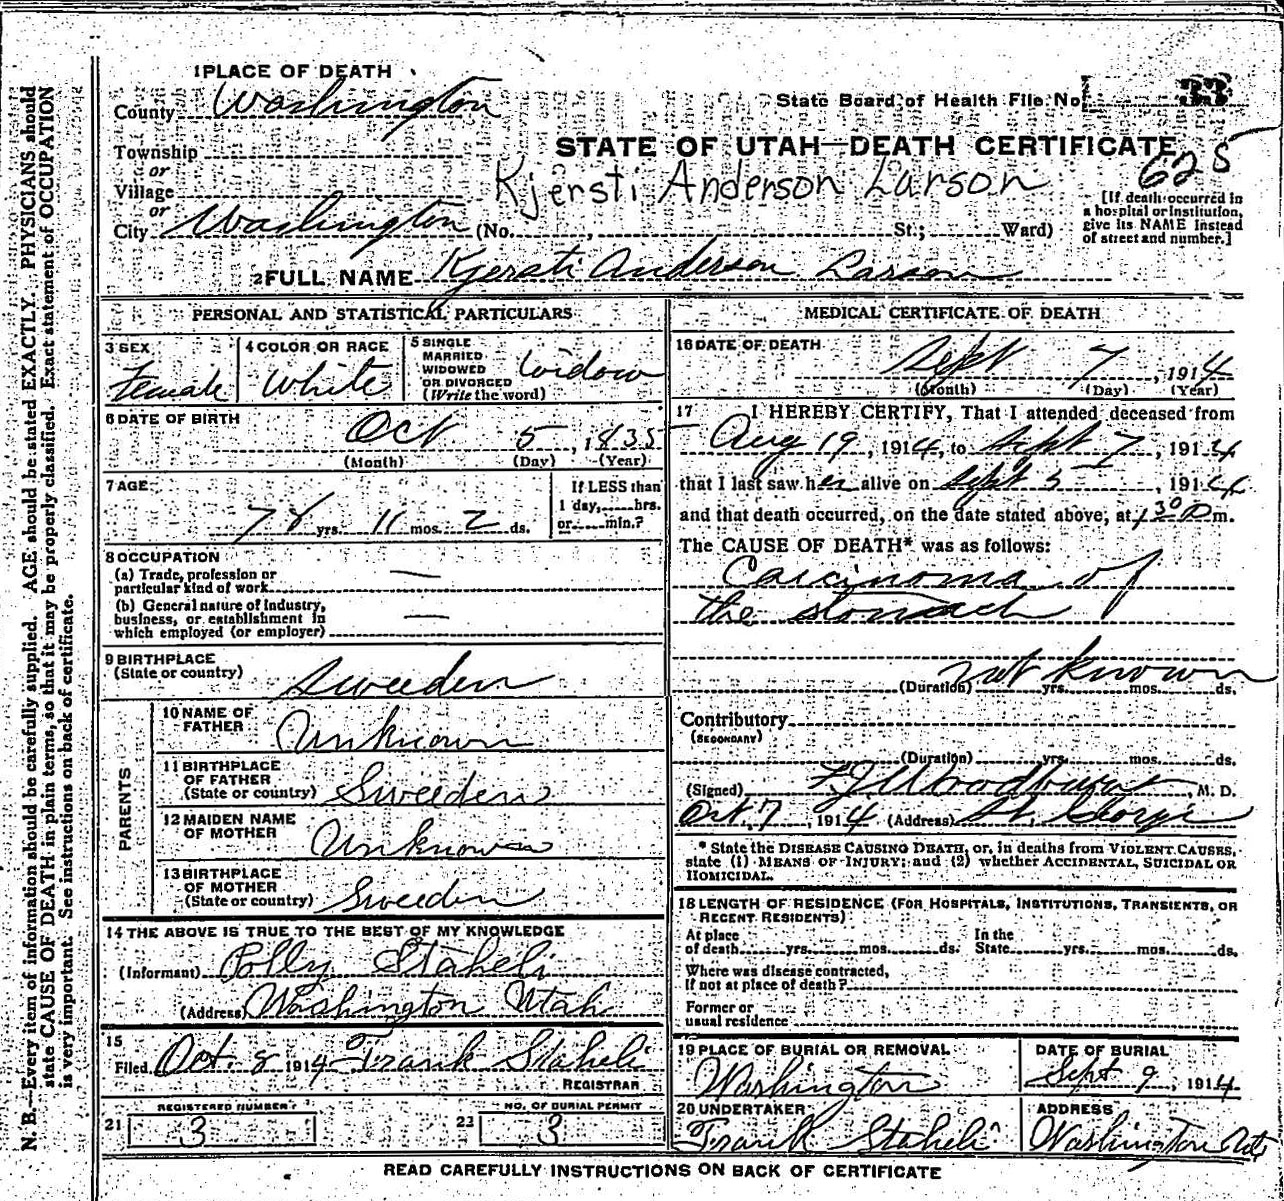 1 PLACE OF DEATH
County Washington
State Board of Health File No. 33
Township
or
STATE OF UTAH—DEATH CERTIFICATE
Village
Kjersti Anderson Larson
625
or
City Washington (No. , St.; Ward)
[If death occurred in
a hospital or institution,
give its NAME instead
of street and number.]
2 FULL NAME Kjersti Anderson Larson
PERSONAL AND STATISTICAL PARTICULARS
3 SEX
Female
4 COLOR OR RACE
White
5 SINGLE
MARRIED
WIDOWED
OR DIVORCED
(Write the word)
Widow
6 DATE OF BIRTH
Oct 5, 1835
(Month) (Day) (Year)
7 AGE
78 yrs. 11 mos. 2 ds.
If LESS than
1 day, hrs.
or min.?
8 OCCUPATION
(a) Trade, profession or
particular kind of work —
(b) General nature of industry,
business, or establishment in
which employed (or employer) —
9 BIRTHPLACE
(State or country) Sweeden
PARENTS
10 NAME OF
FATHER Unknown
11 BIRTHPLACE
OF FATHER
(State or country) Sweeden
12 MAIDEN NAME
OF MOTHER Unknown
13 BIRTHPLACE
OF MOTHER
(State or country) Sweeden
14 THE ABOVE IS TRUE TO THE BEST OF MY KNOWLEDGE
(Informant) Polly Staheli
(Address) Washington Utah
15
Filed Oct. 8 1914 Frank Staheli
REGISTRAR
REGISTERED NUMBER
21 3
NO. OF BURIAL PERMIT
22 3
MEDICAL CERTIFICATE OF DEATH
16 DATE OF DEATH
Sept 7, 1914
(Month) (Day) (Year)
17 I HEREBY CERTIFY, That I attended deceased from
Aug 19, 1914, to Sept 7, 1914
that I last saw her alive on Sept 5, 1914
and that death occurred, on the date stated above, at 1 30 P m.
The CAUSE OF DEATH* was as follows:
Carcinoma of
the stomach
not known
(Duration) yrs. mos. ds.
Contributory
(SECONDARY)
(Duration) yrs. mos. ds.
(Signed) F J Woodbury, M. D.
Oct. 7, 1914 (Address) St. George
* State the DISEASE CAUSING DEATH, or, in deaths from VIOLENT CAUSES,
state (1) MEANS OF INJURY; and (2) whether ACCIDENTAL, SUICIDAL OR
HOMICIDAL.
18 LENGTH OF RESIDENCE (FOR HOSPITALS, INSTITUTIONS, TRANSIENTS, OR
RECENT RESIDENTS)
At place
of death yrs. mos. ds.
In the
State yrs. mos. ds.
Where was disease contracted,
If not at place of death?
Former or
usual residence
19 PLACE OF BURIAL OR REMOVAL
Washington
DATE OF BURIAL
Sept 9, 1914
20 UNDERTAKER
Frank Staheli
ADDRESS
Washington Utah
READ CAREFULLY INSTRUCTIONS ON BACK OF CERTIFICATE
N. B.—Every item of information should be carefully supplied. AGE should be stated EXACTLY. PHYSICIANS should
state CAUSE OF DEATH in plain terms, so that it may be properly classified. Exact statement of OCCUPATION
is very important. See instructions on back of certificate.